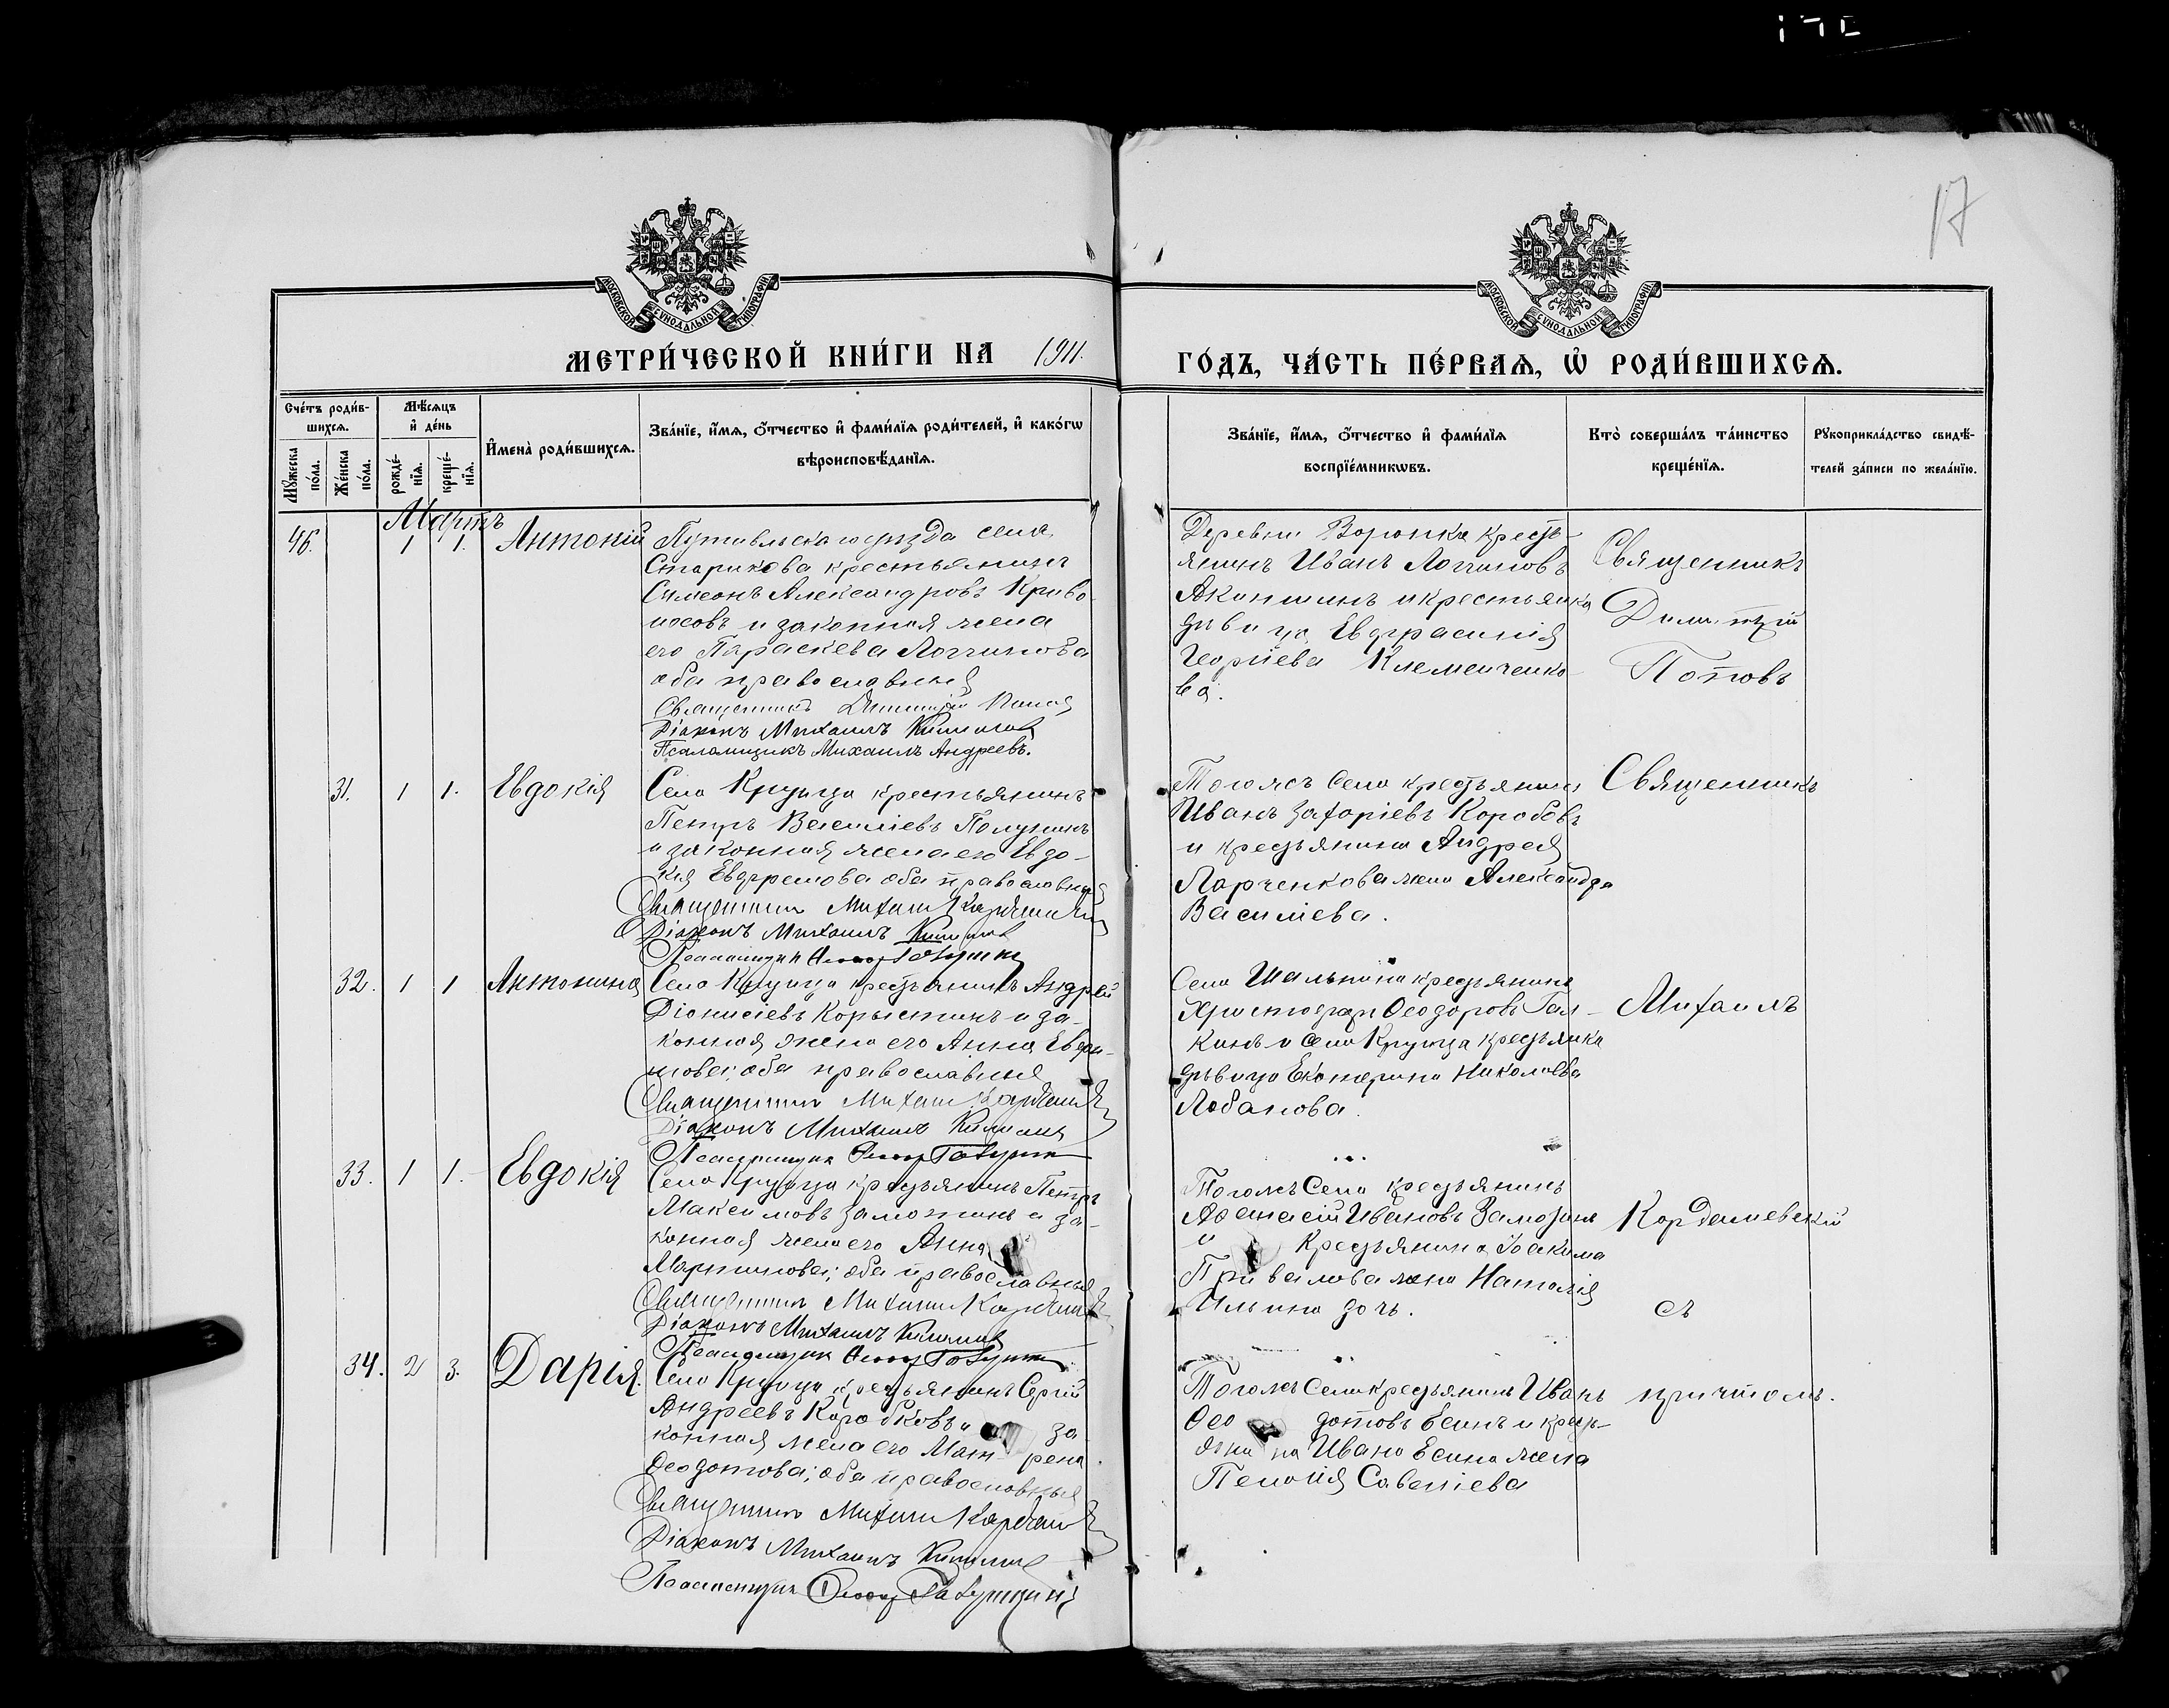 17
МОСКОВСКОЙ СѴНОДАЛЬНОЙ ТИПОГРАФІИ
МОСКОВСКОЙ СѴНОДАЛЬНОЙ ТИПОГРАФІИ
МЕТРИ́ЧЕСКОЙ КНИ́ГИ НА 1911. ГО́ДЪ, ЧА́СТЬ ПЕ́РВАѦ, Ѡ҆ РОДИ́ВШИХСѦ.
Сче́тъ роди́в-
шихсѧ.
Мѣ́сѧцъ
и҆ де́нь
Мꙋ́жеска по́ла.
Же́нска по́ла.
рожде́-
нїѧ.
креще́-
нїѧ.
И҆мена̀ роди́вшихсѧ.
Зва́нїе, и҆́мѧ, ѻ҆́тчество и҆ фами́лїѧ роди́телей, и҆ како́гѡ
вѣроисповѣ́данїѧ.
Зва́нїе, и҆́мѧ, ѻ҆́тчество и҆ фами́лїѧ
воспрїе́мникѡвъ.
Кто̀ соверша́лъ та́инство
креще́нїѧ.
Рꙋкоприкла́дство свидѣ́-
телей за́писи по жела́нїю.
Мартъ
46. 1 1. Антоній
Путивльскаго уѣзда села
Старикова крестьянинъ
Симеонъ Александровъ Криво-
носовъ и законная жена
его Параскева Логгинова
оба православныя
Священникъ Димитрій Попов
Діаконъ Михаилъ
Псаломщикъ Михаилъ Андреевъ.
Деревни Воронка кресть-
янинъ Иванъ Логгиновъ
Акиншинъ и крестьянка
дѣвица Евфрасинія
Георгіева Клеменченко-
ва.
Священникъ
Димитрій
Поповъ
31. 1 1. Евдокія
Села Крупца крестьянинъ
Петръ Василіевъ Полунинъ
и законная жена его Евдо-
кія Евфремова оба православныя
Священникъ Михаил
Діаконъ Михаилъ
Того жъ села крестьянинъ
Иванъ Захаріевъ Коробовъ
и крестьянина Андрея
Ларченкова жена Александра
Василіева.
Священникъ
32. 1 1 Антонина
Села Крупца крестьянинъ Андрей
Діонисіевъ Корыстинъ и за-
конная жена его Анна Евфи-
мова; оба православныя
Священникъ Михаил
Діаконъ Михаилъ
Села Шалыгина крестьянинъ
Христофоръ Ѳеодоровъ Гал-
кинъ и села Крупца крестьянка
дѣвица Екатерина Николаева
Лобанова.
Михаилъ
33. 1 1. Евдокія
Села Крупца крестьянинъ Петръ
Максимовъ Замозинъ и за-
конная жена его Анна
Мартинова; оба православныя
Священникъ Михаил
Діаконъ Михаилъ
Того жъ села крестьянинъ
Аѳанасій Ивановъ Замозинъ
и крестьянина Іоакима
Привалова жена Наталія
Ильина дочь.
Кардашевскій
съ
34. 2 3. Дарія.
Села Крупца крестьянинъ Сергій
Андреевъ Коробковъ и за-
конная жена его Мат рена
Ѳеодотова; оба православныя
Священникъ Михаил
Діаконъ Михаилъ
Псаломщикъ
Того жъ села крестьянинъ Иванъ
Ѳео дотовъ Есинъ и кресть-
яни на Ивана Есина жена
Пелагія Савеліева
причтомъ.